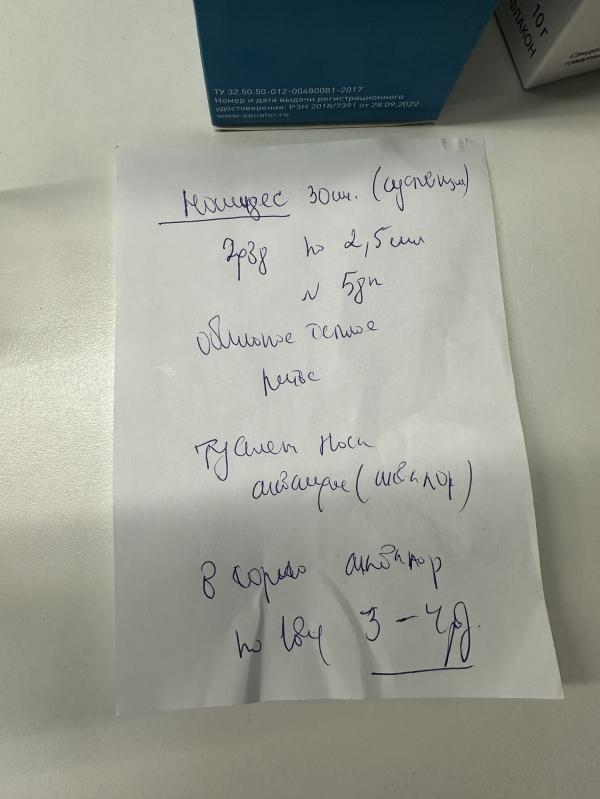 10 г
ФЛАКОН
ТУ 32.50.50-012-00480081-2017
Номер и дата выдачи регистрационного
удостоверения: РЗН 2018/7391 от 28.09.2022
www.aquator.ru
30 мл. (суспензия)
2р3д по 2,5 мл
N 5дн
обильное теплое
питье
туалет носа
(аквалор)
в горло аквалор
по 3-4 р.